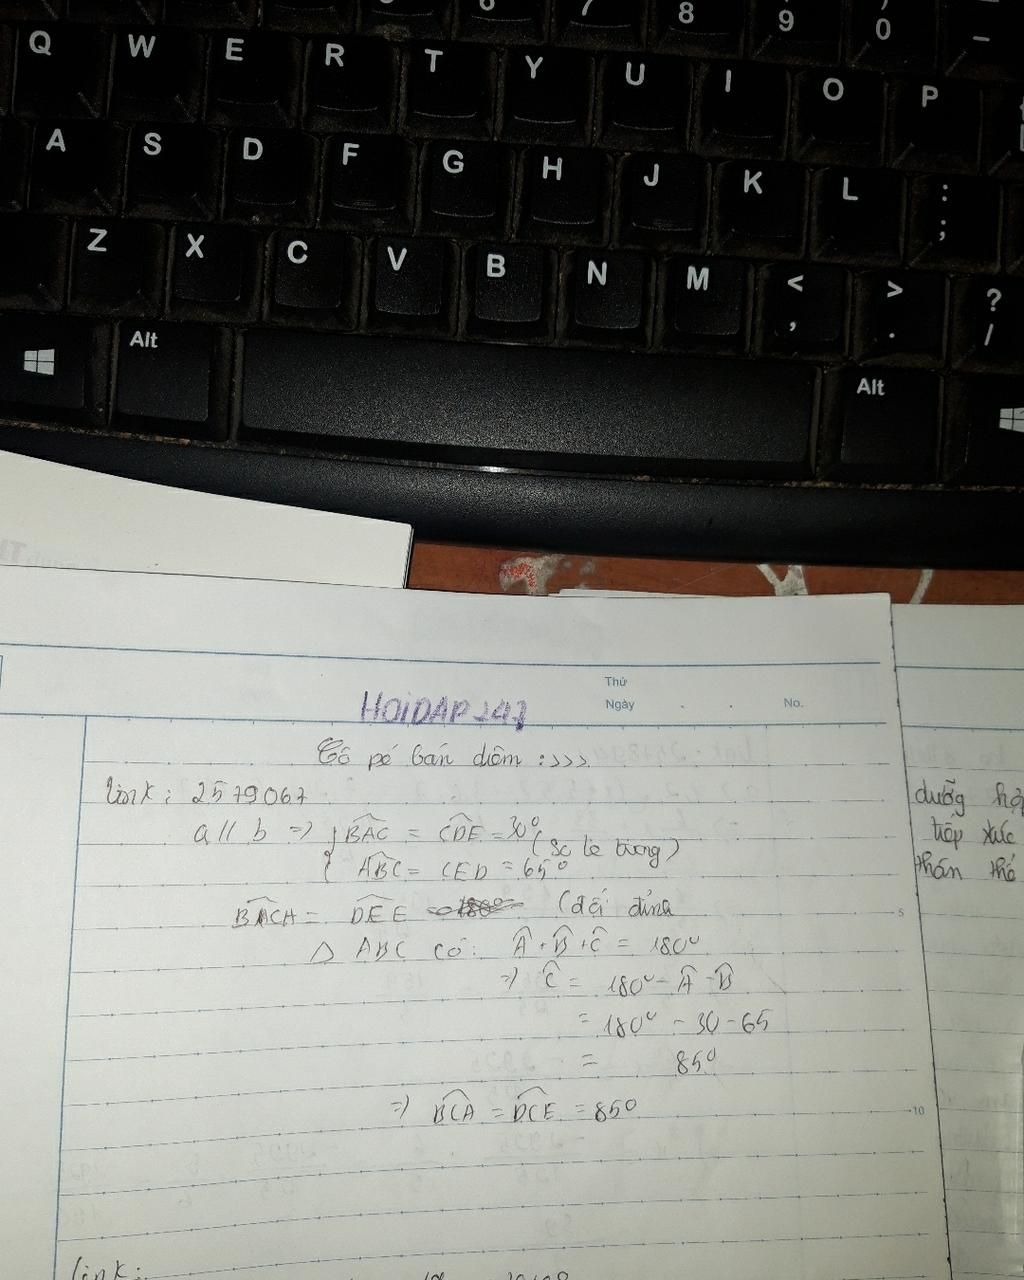 6 7 8 9 0 _
Q W E R T Y U I O P
A S D F G H J K L : ;
Z X C V B N M < , > . ? /
Alt Alt
Thứ
Ngày . . No.
HOIDAP247
Cô pé bán diêm :>>>
link: 2579067
a // b => { BAC = CDE = 30° (so le trong)
ABC = CED = 65°
BACA = DEE (đối đỉnh
Δ ABC có: A + B + C = 180°
=> C = 180° - A - B
= 180° - 30 - 65
= 85°
=> BCA = DCE = 85°
link:
dưỡng
tiếp xúc
thân thể
5
10